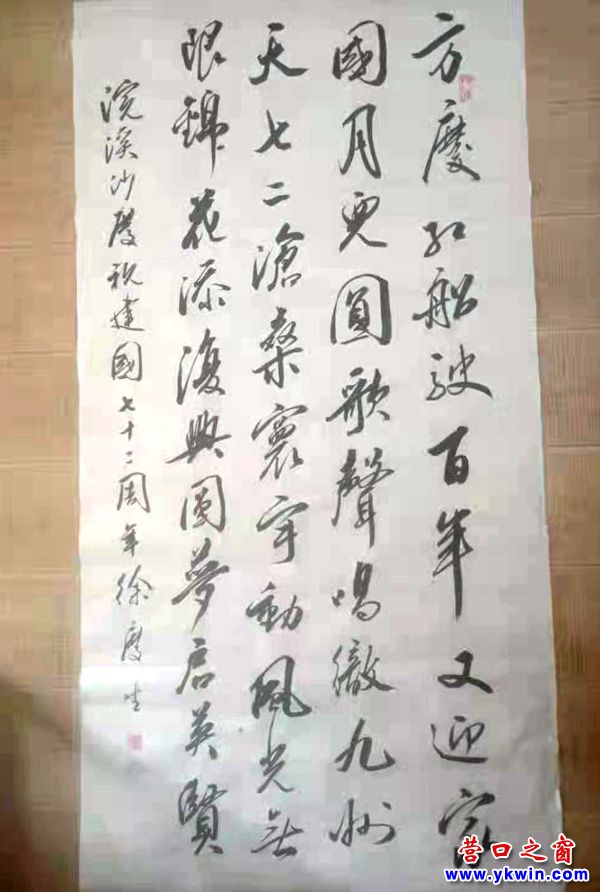 方慶红船駛百年又迎家
國月兒圓歌聲唱徹九州
天七二滄桑寰宇動風光無
限錦花添復興圓夢启英賢
浣溪沙慶祝建國七十二周年徐慶生
营口之窗
www.ykwin.com